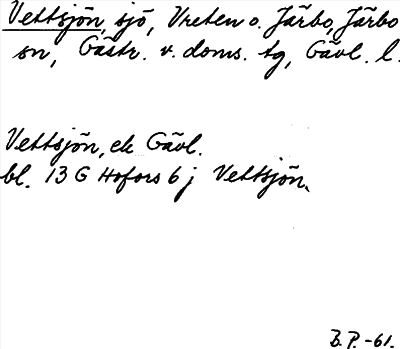 Vettsjön, sjö, Vreten o. Järbo, Järbo
sn, Gästr. v. doms. tg, Gävl. l.
Vettsjön, ek Gävl.
bl. 13 G Hofors 6 j Vettsjön.
B.P. -61.